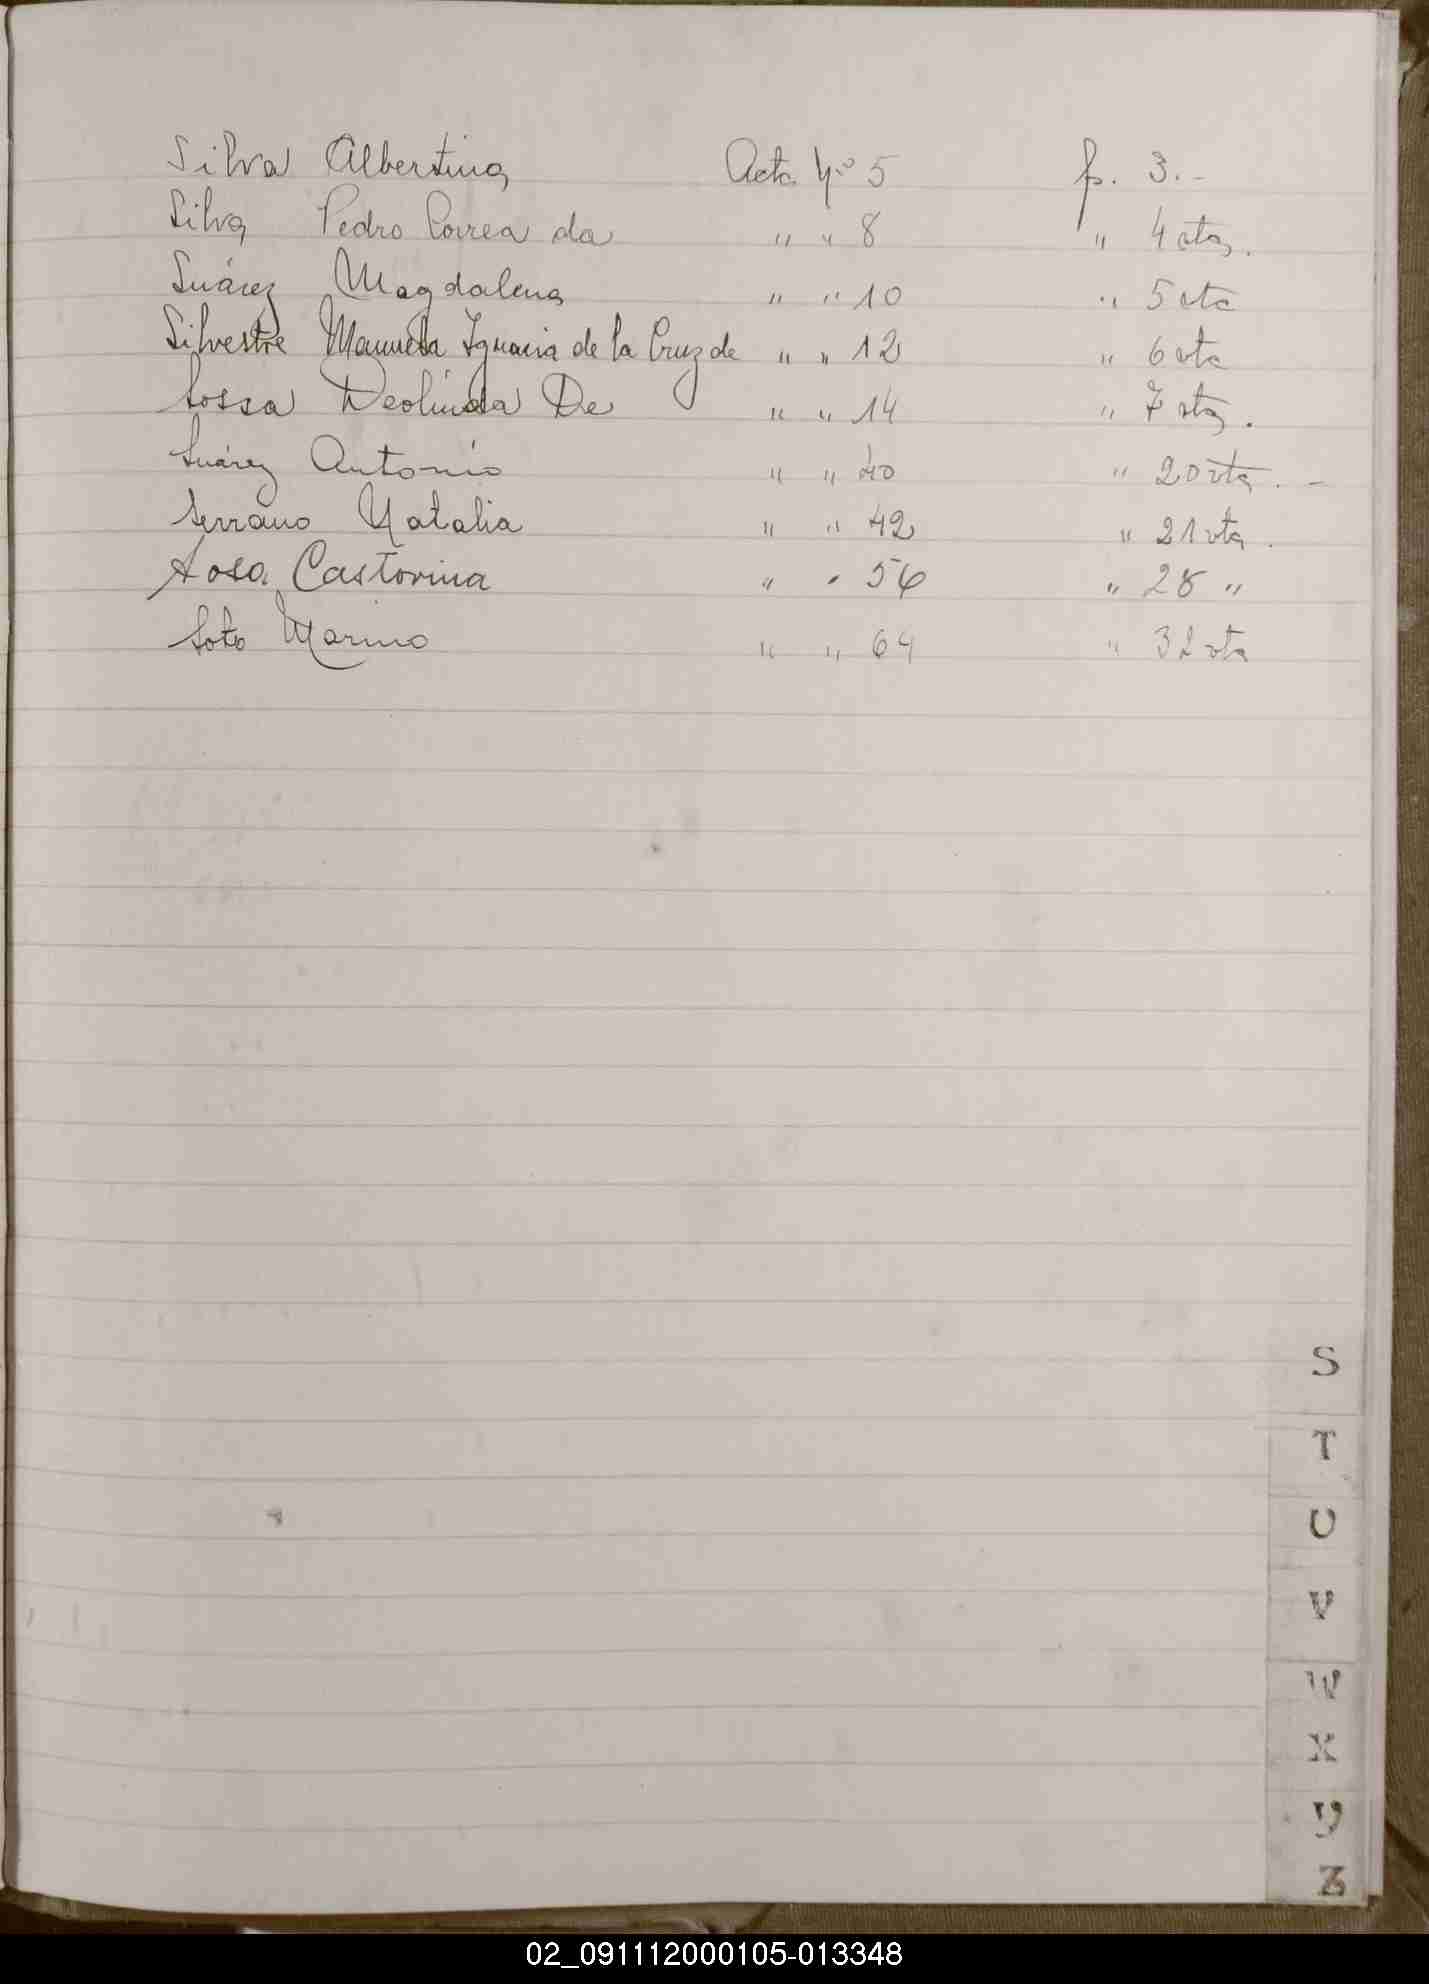 Silva Albertina Acta Nº 5 f. 3.-
Silva Pedro Correa da " " 8 " 4 vta.
Suárez Magdalena " " 10 " 5 vta
Silvestre Manuela Ignacia de la Cruz de " " 12 " 6 vta
Sossa Deolinda De " " 14 " 7 vta.
Suárez Antonio " " 40 " 20 vta. -
Serrano Natalia " " 42 " 21 vta.
Sosa Castorina " " 56 " 28 "
Soto Marino " " 64 " 32 vta
S
T
U
V
W
X
Y
Z
02_091112000105-013348